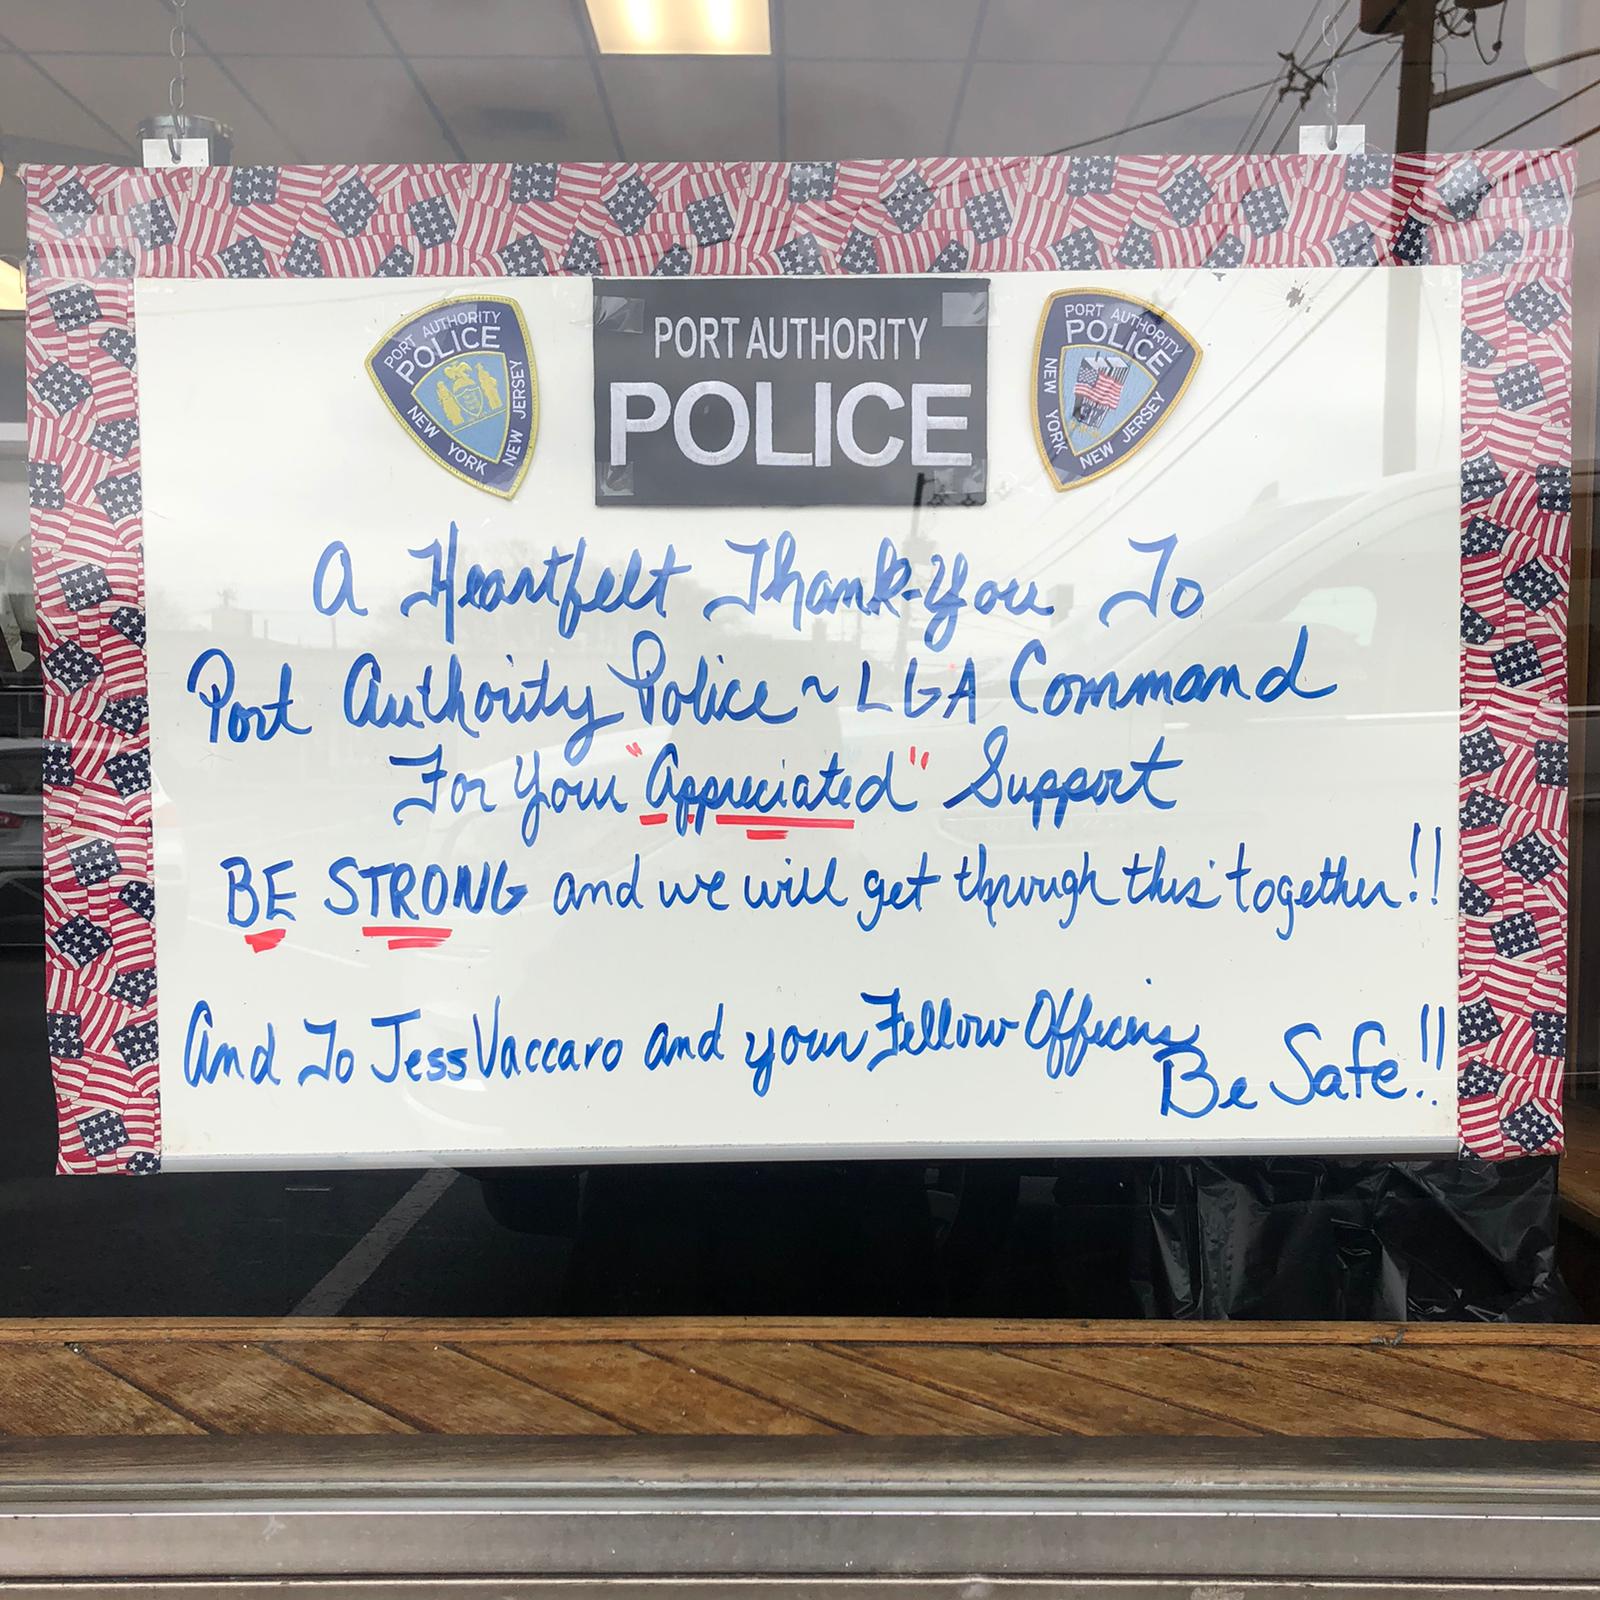 PORT AUTHORITY
POLICE
NEW YORK
NEW JERSEY
PORT AUTHORITY
POLICE
PORT AUTHORITY
POLICE
NEW YORK
NEW JERSEY
A Heartfelt Thank-You To
Port Authority Police ~ LGA Command
For Your "Appreciated" Support
BE STRONG and we will get through this together!!
And To Jess Vaccaro and your Fellow Officers
Be Safe!!